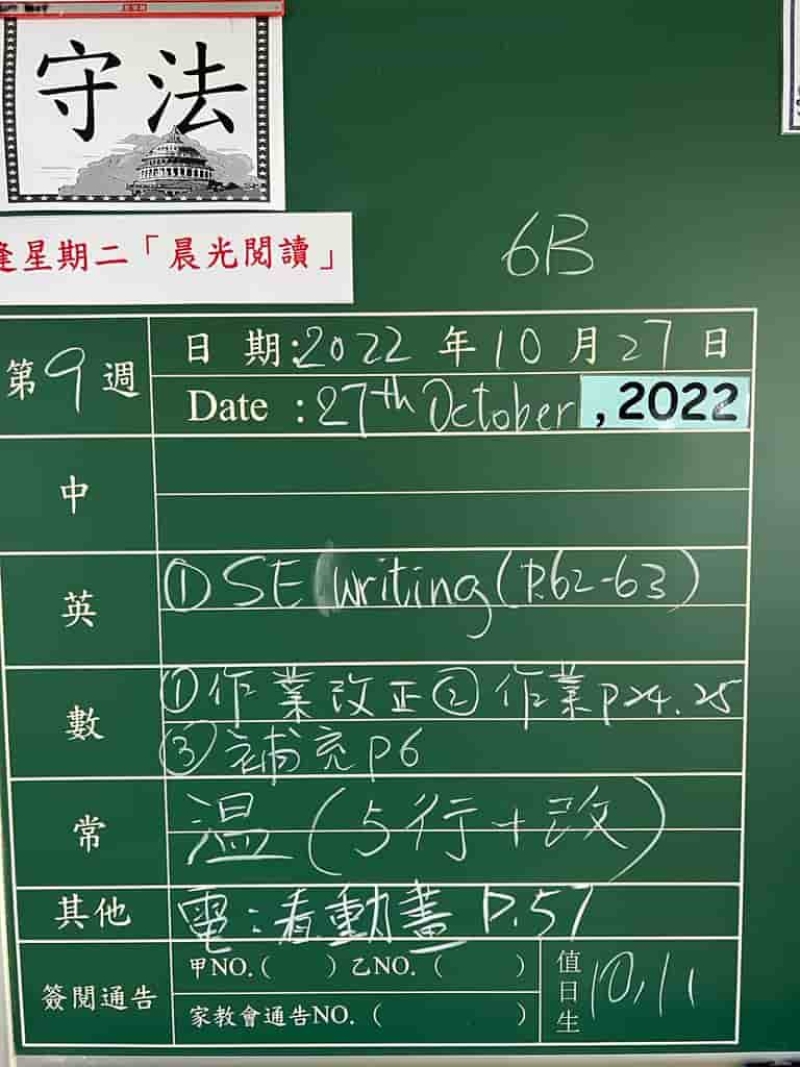 守法
逢星期二「晨光閱讀」
6B
第9週
日 期:2022 年 10 月 27 日
Date :27th October ,2022
中
英
①SE writing (P.62-63)
數
①作業改正②作業P24.25
③補充P6
常
溫(5行+改)
其他
電:看動畫 P.57
簽閱通告
甲NO.( )乙NO.( )
家教會通告NO.( )
值日生
10,11